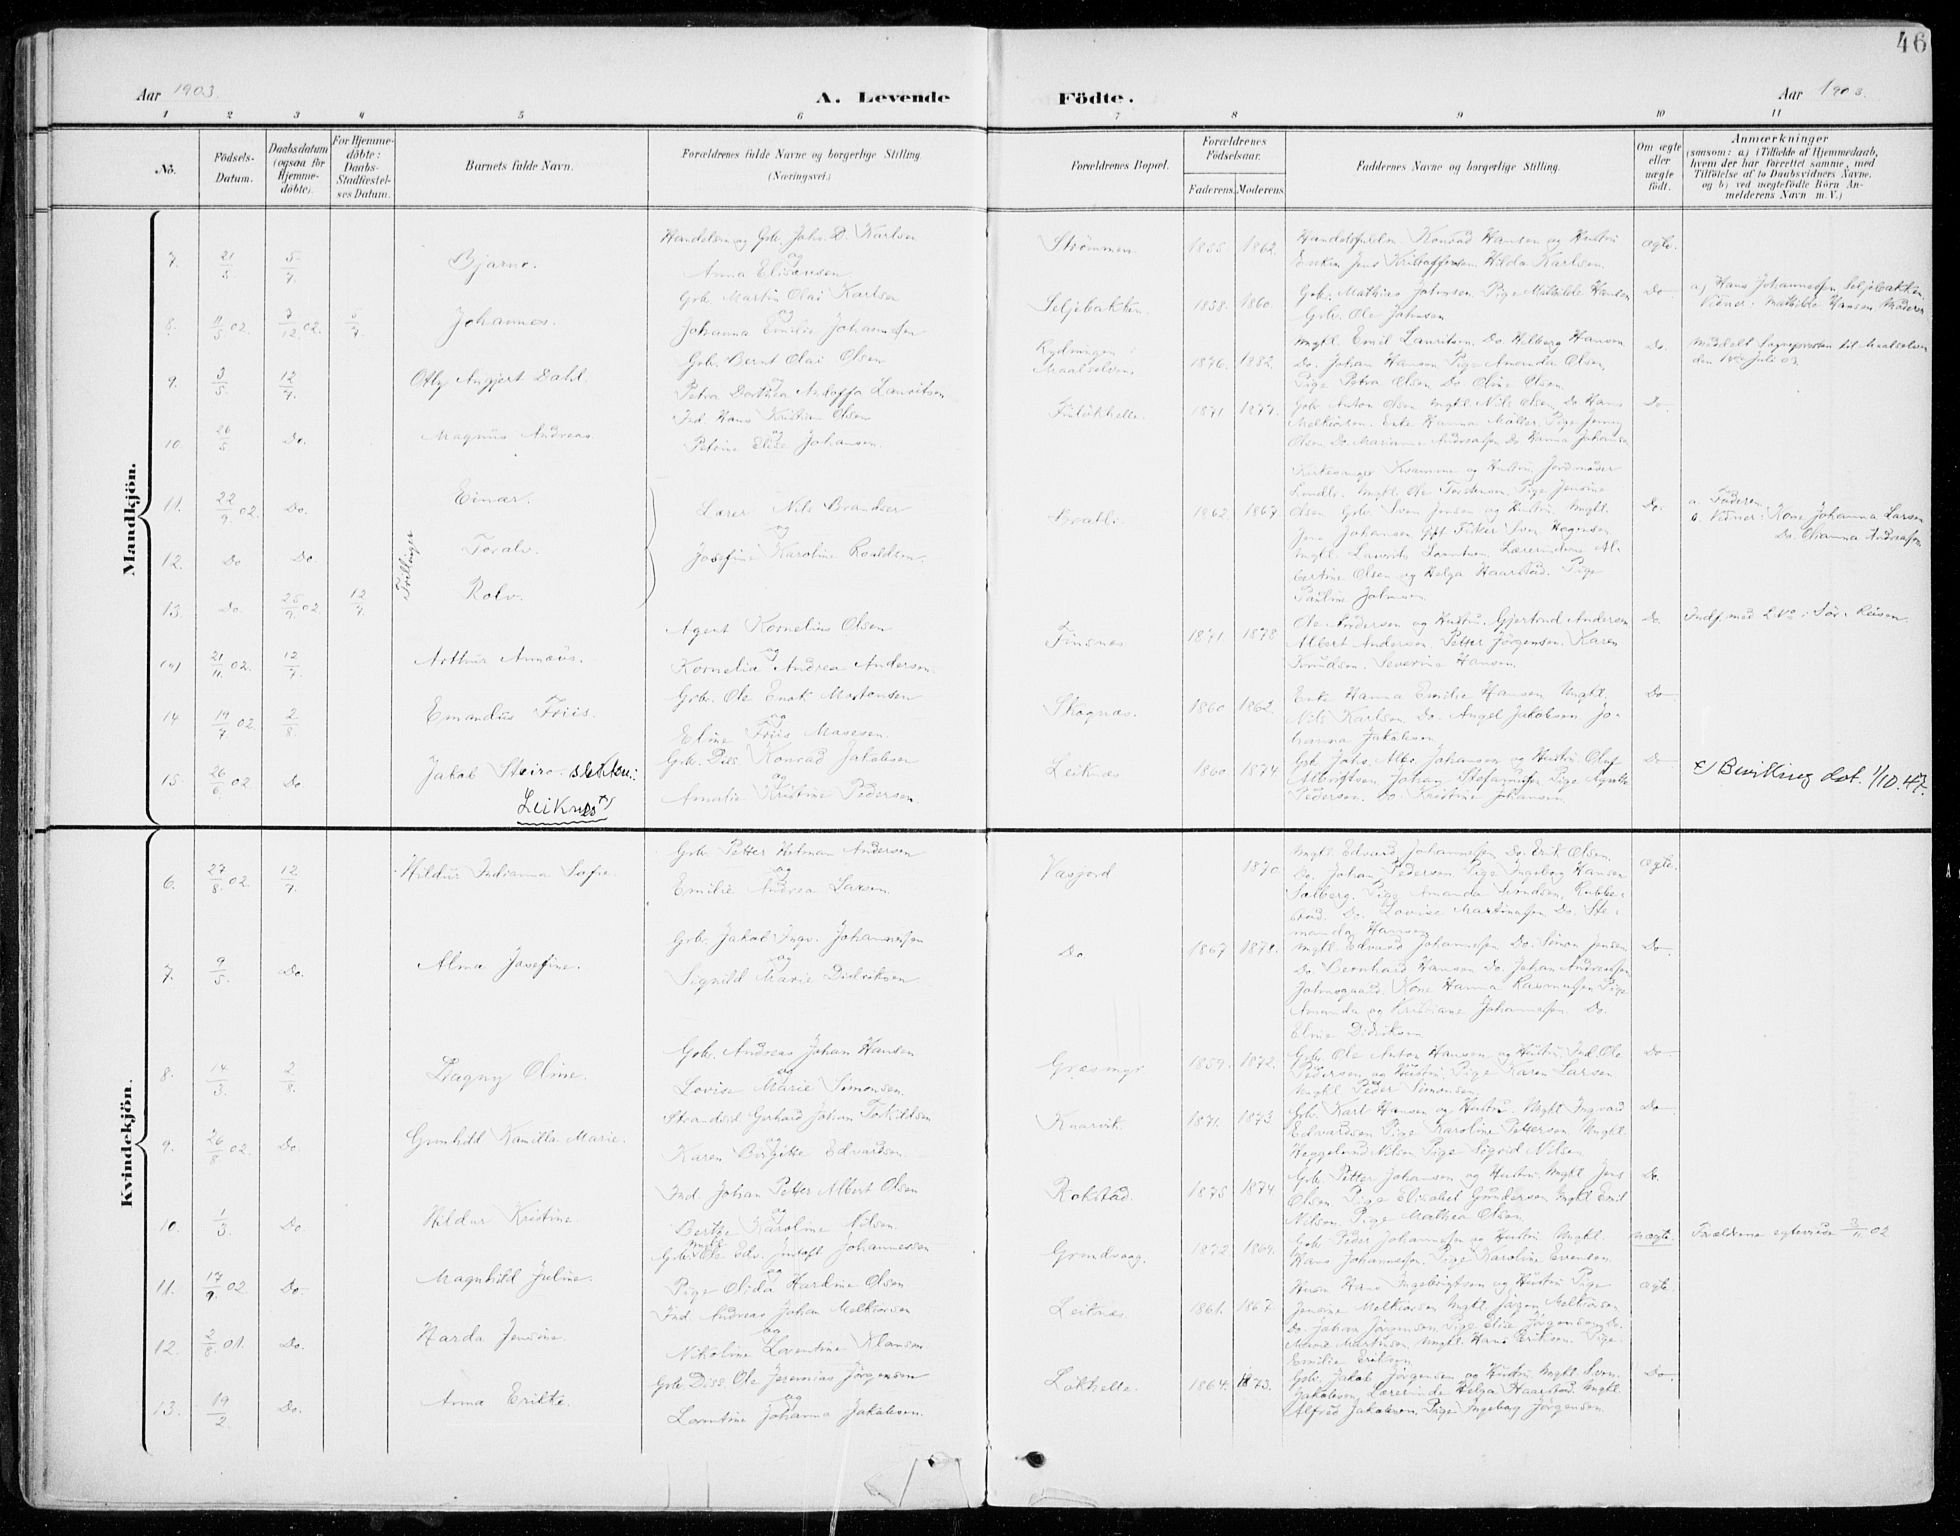 46
Aar 1903.
A. Levende Födte.
Aar 1903.
1 2 3 4 5 6 7 8 9 10 11
No.
Födsels-Datum.
Daabsdatum (ogsaa for Hjemme-döbte).
For Hjemme-döbte: Daabs-Stadfæstel-ses Datum.
Barnets fulde Navn.
Forældrenes fulde Navne og borgerlige Stilling.
(Næringsvei.)
Forældrenes Bopæl.
Forældrenes Födselsaar.
Faderens. Moderens.
Faddernes Navne og borgerlige Stilling.
Om ægte eller uægte födt.
Anmærkninger
(saasom: a) i Tilfælde af Hjemmedaab,
hvem der har forrettet samme, med
Tilföielse af to Daabsvidners Navne,
og b) ved uægtefödte Börn An-
melderens Navn m. V.)
Mandkjön.
7. 21/3 5/7 Bjarne.
og
Anna Elisæusen
Strømmen 1855. 1862.
Handelsfuldm. Konrad Hansen og Hustru
Enken Jens Kristoffersen. Hilda Karlsen.
ægte.
8. 11/5 02. 7/12 02. 5/7 Johannes.
Gbr. Martin Olai Karlsen
og
Johanna Emilie Johannesen
Seljebakken. 1858. 1860.
Gbr. Mathias Johnsen Pige Mathilde Hansen
Gbr. Ole Johnsen
Do
a) Hans Johannessen Seljebakken.
Vidner: Mathilde Hansen, Moderen
9. 3/5 12/7 Otly Angjert Dahl.
Gbr. Bernt Olai Olsen
og
Petra Dorthea Lauritsen
Rydningen i
Maalselven. 1876. 1882.
Ungkl. Emil Lauritsen. Do. Hilberg Hansen
Do. Johan Hansen Pige Amanda Olsen
Pige Petra Olsen Do. Oline Olsen.
Do.
Meddelt Sognepræsten til Maalselven
den 14de Juli 03
10 26/5 Do. Magnus Andreas.
Ind. Hans Kristian Olsen
og
Petrine Elise Johansen.
1871 1877.
Gbr. Anton Olsen Ungkl Nils Olsen, Do Hans
Melkiorsen. Enke Hanna Möller, Pige Jenny
Olsen Do. Marianne Andreassen Do Hanna Johansen
Do
11. 22/9 02. Do. Einar.
12. Do Do. Toralv.
13. Do 25/9 02 12/7 Rolv.
Trillinger
Lærer Nils Brandser
og
Josefine Karoline Roaldsen.
1862 1867
Kirkesanger Kvamme og Hustru, Jordmoder
Ungkl. Ole Torstensen. Pige Jensine
Olsen Gbr. Sven Jensen og Hustru, Ungkl.
Jens Johansen, Gft Fisker Sven Hagensen
Lærerinderne Al-
bertine Olsen og Helga Haarstad. Pige
Pauline Johnsen
Do.
a. Faderen
Vidner: Kone Johanna Larsen
Do. Andreassen
21/11 02. 12/7 Arthur Annæus.
Agent Kornelius Olsen
og
Kornelia Andrea Andersen.
Finsnes 1871 1878
Ole Andersen og Hustru. Gjertrud Andersen
Albert Andersen. Petter Jörgensen. Karen
Knudsen. Severine Hansen.
Do.
14 19/7 02. 2/8. Emandus Friis.
Gbr. Ole Enok Mortensen
og
Eline Friis Masesen.
Skognæs. 1860 1862.
Enke Hanna Emilie Hansen, Ungkl.
Nils Karlsen. Do. Angel Jakobsen, Jo-
hanna Jakobsen
Do
15. 26/6 02 Do Jakob Steiro.
Leiknes x)
Gbr. Diss. Konrad Jakobsen
og
Amalie Kristine Pedersen.
Leiknæs 1860 1874
Gbr. Johs. Albr. Johansen og Hustru Olaf
Albrigtsen Johan Stefanussen Pige Agathe
Pedersen. Do. Kristine Johansen.
Do
x) Bevilling dat. 1/10.47.
Kvindekjön.
6. 27/8. 02. 12/7. Hildur Indianna Sofie.
Gbr. Petter Hitman Andersen
og
Emilie Andrea Larsen.
Vasjord 1870.
Ungkl. Edvard Johannessen. Do. Erik Olsen.
Do. Johan Pedersen Pige Ingeborg Hansen
Solberg. Pige Amanda
Do. Lovise Martinussen Do. Ste-
manda Hansen
ægte.
7. 9/5. Do. Alma Josefine.
Gbr. Jakob Ingv. Johannessen
og
Signild Marie Didriksen
Do 1867 1878.
Ungkl Edvard Johannessen. Do. Simon Jensen
Do. Bernhard Hansen Do. Johan Andreassen
Kone Hanna Rasmussen Pige
Amanda og Kristiane Johannessen. Do.
Eline Didriksen
Do
8. 14/3. 2/8. Dagny Oline.
Gbr. Andreas Johan Hansen
og
Lovise Marie Simonsen.
Græsmyr 1859. 1872.
Gbr. Ole Anton Hansen og Hustru. Ind. Ole
Pedersen og Hustru. Pige Karen Larsen
Ungkl Peder Simonsen
Do
9. 26/8 02. Do. Gunhild Kamilla Marie.
Strandsid. Gerhard Johan Torkildsen
og
Karen Birgitte Edvardsen
Knarvik. 1871. 1873.
Gbr. Karl Hansen og Hustru. Ungkl Ingvard
Edvardsen Pige Karoline Pettersen. Ungkl.
Heggelund Nilsen Pige Sigrid Nilsen
Do
10. 1/3. Do. Hildur Kristine.
Ind. Johan Petter Albert Olsen
og
Berthe Karoline Nilsen
Rokstad. 1875 1874
Gbr. Petter Johansen og Hustru. Ungkl. Jens
Olsen Pige Elisabet Gundersen Ungkl Emil
Nilsen. Pige Mathea Olsen
Do.
11. 17/9. 02. Do Magnhild Juline.
Gbr. Ole Edv. Johannessen
og
Pige Olida Hardine Olsen
Grundvaag. 1872 1869.
Gbr. Peder Johannessen og Hustru Ungkl.
Hans Johannessen. Pige Karoline Evensen.
uægte.
Forældrene egteviede 3/11 02
12. 2/8 01. Do. Harda Jensine.
Ind. Andreas Johan Melkiorsen
og
Nikoline Loventine Klausen
Leiknæs 1861. 1867.
Husm Hans Ingebrigtsen og Hustru Pige
Jensine Melkiorsen Ungkl. Jörgen Melkiorsen
Do. Johan Jörgensen, Pige Elise Jörgensen, Do.
Marie Martinsen, Ungkl. Hans Eriksen. Pige
Emilie Eriksen
ægte.
13. 19/2 Do. Anna Erikke.
Gbr. Diss. Ole Jeremias Jörgensen
og
Loventine Johanna Jakobsen.
Lökhelle. 1864. 1873.
Gbr. Jakob Jörgensen og Hustru. Ungkl Sven
Jakobsen, Lærerinde Helga Haarstad. Ungkl.
Alfred Jakobsen Pige Ingeborg Jörgensen.
Do